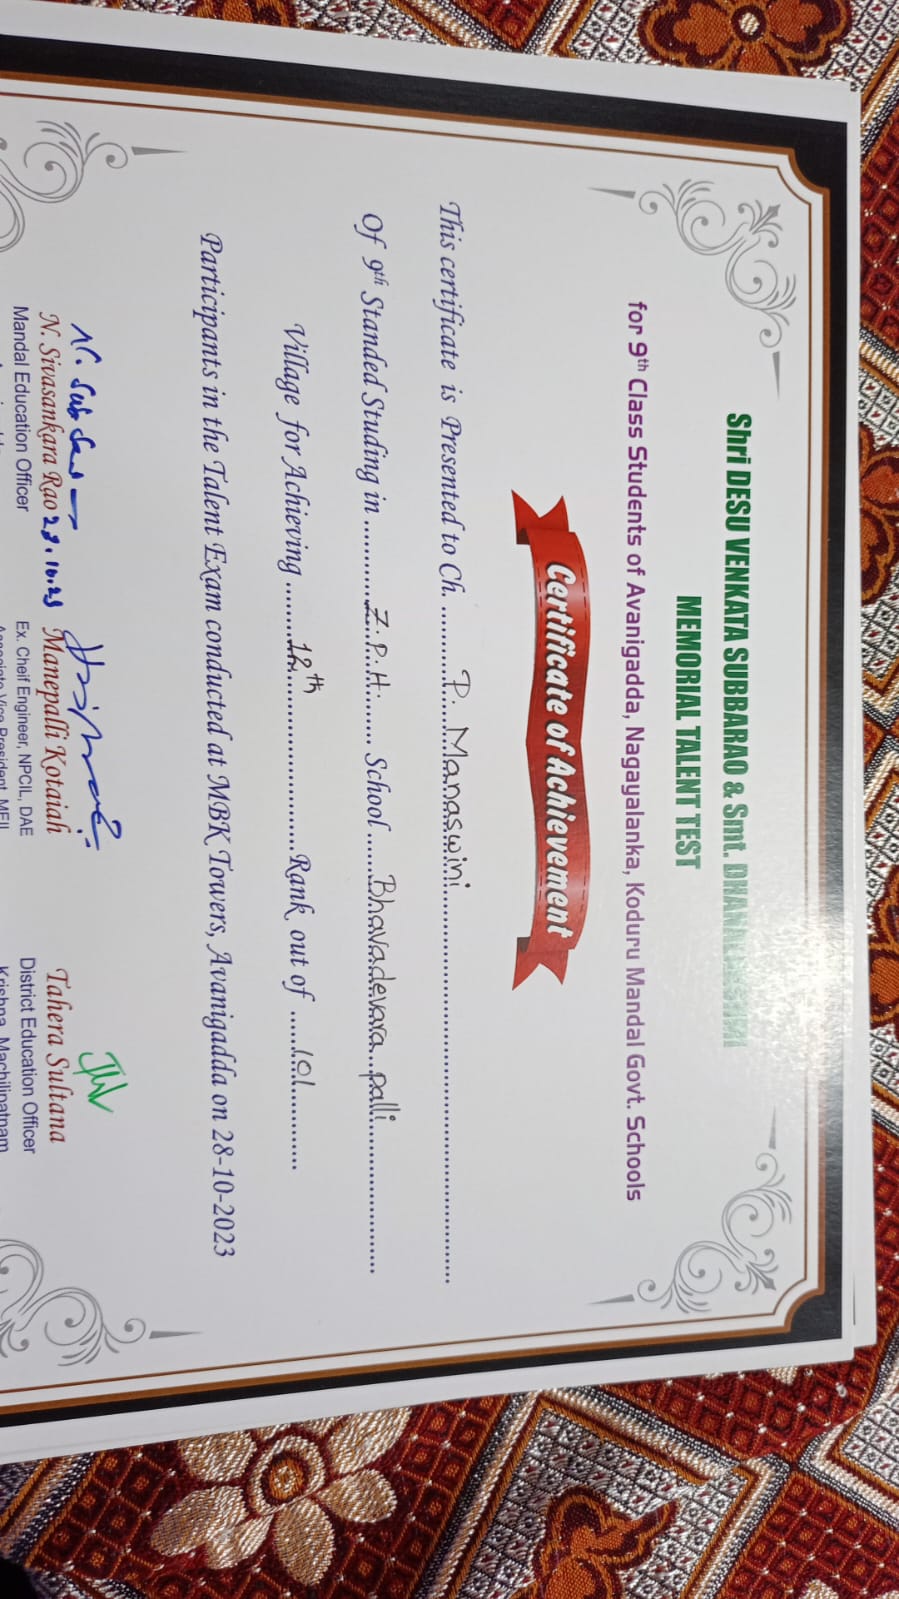 Shri DESU VENKATA SUBBARAO & Smt.
MEMORIAL TALENT TEST
for 9th Class Students of Avanigadda, Nagayalanka, Koduru Mandal Govt. Schools
Certificate of Achievement
This certificate is Presented to Ch. .......... P. Manaswini ..........
Of 9th Standed Studing in .......... Z.P.H. ....... School ...... Bhavadevara palli ..........
Village for Achieving ........ 12th .......... Rank out of ...... 101 ..........
Participants in the Talent Exam conducted at MBK Towers, Avanigadda on 28-10-2023
28.10.23
N. Sivasankara Rao Manepalli Kotaiah Tahera Sultana
Mandal Education Officer Ex. Cheif Engineer, NPCIL, DAE District Education Officer
Associate Vice President, MEIL Krishna, Machilipatnam